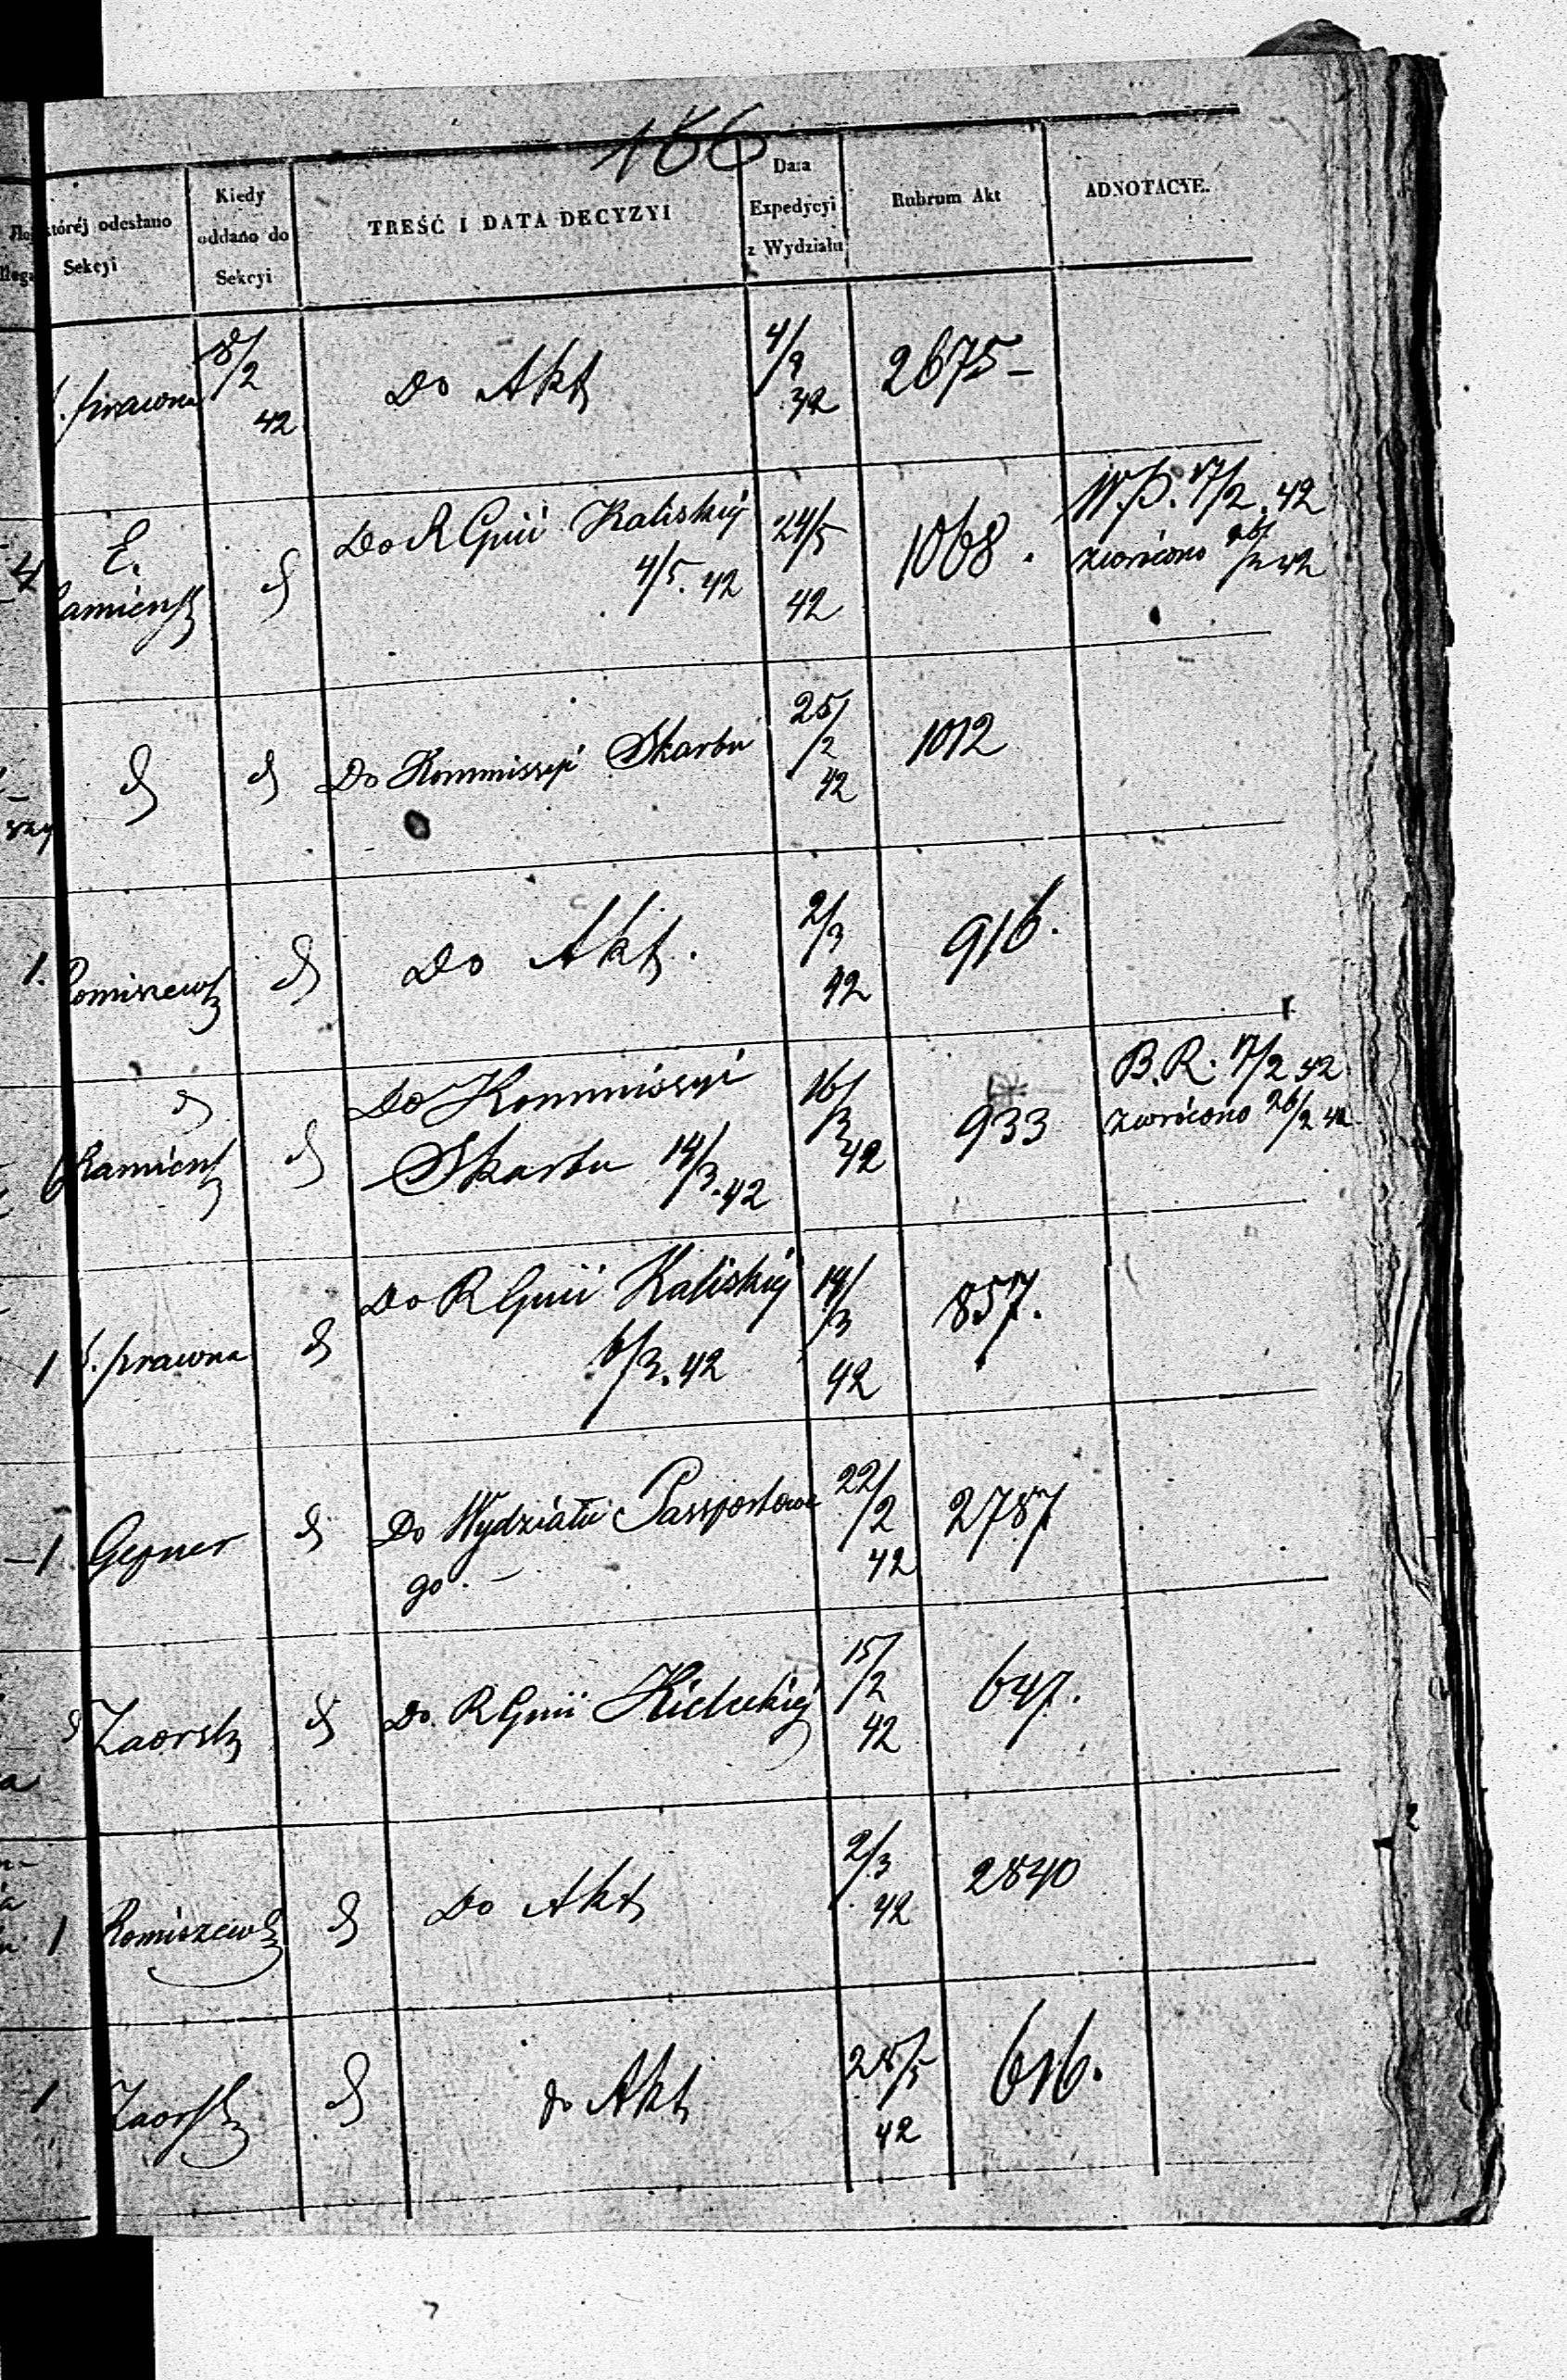 166
której odesłano
Sekcyi
Kiedy
oddano do
Sekcyi
TREŚĆ I DATA DECYZYI
Data
Expedycyi
z Wydziału
Rubrum Akt
ADNOTACYE.
prawna
8/2
42
Do Akt
4/2
42
2675 –
4
E.
Kamieńsk
d
Do R Gnii Kaliskiéj
4/5. 42
24/5
42
1068.
W.P. 17/2. 42
zwrócono 26/2 42
d
d
Do Kommissyi Skarbu
25/2
42
1012
1.
Romiszews
d
Do Akt.
2/3
42
916.
d
Kamieńs
d
Do Kommissyi
Skarbu 14/3. 42
16/3
42
933
B.R. 17/2 42
zwrócono 26/2 42
1
prawna
d
Do R Gnii Kaliskiéj
6/3. 42
14/3
42
857.
–1
Gepner
d
Do Wydziału Passportowe
go. –
22/2
42
2787
Zaorsk
d
Do R Gnii Kieleckiéj
15/2
42
647.
1
Romiszews
d
Do Akt
2/3
42
2840
1
Zaorsk
d
do Akt
28/5
42
616.